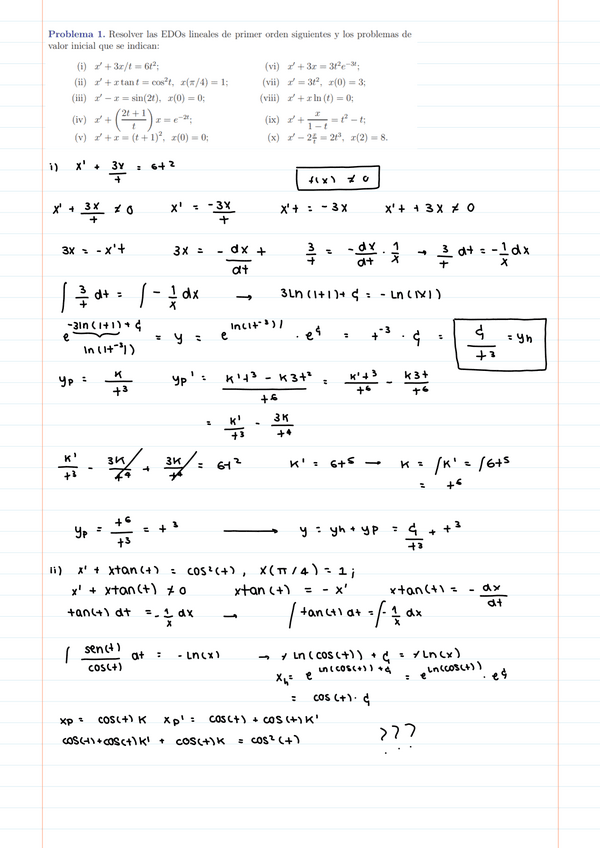 Problema 1. Resolver las EDOs lineales de primer orden siguientes y los problemas de
valor inicial que se indican:
(i) x' + 3x/t = 6t²;
(ii) x' + x tan t = cos²t, x(π/4) = 1;
(iii) x' − x = sin(2t), x(0) = 0;
(iv) x' + ((2t + 1)/t) x = e^{−2t};
(v) x' + x = (t + 1)², x(0) = 0;
(vi) x' + 3x = 3t²e^{−3t};
(vii) x' = 3t², x(0) = 3;
(viii) x' + x ln (t) = 0;
(ix) x' + x/(1 − t) = t² − t;
(x) x' − 2x/t = 2t³, x(2) = 8.
i) x' + 3x/t = 6t²
f(x) ≠ 0
x' + 3x/t ≠ 0 x' = −3x/t x't = −3x x't + 3x ≠ 0
3x = −x't 3x = −dx/dt t 3/t = −dx/dt · 1/x → 3/t dt = −1/x dx
∫ 3/t dt = ∫ −1/x dx → 3Ln(|t|) + C₁ = −Ln(|x|)
e^{−3ln(|t|) + C₁} = y = e^{ln(|t^{−3}|)} · e^{C₁} = t^{−3} · C₁ = C₁/t³ = yh
ln(|t^{−3}|)
yp = K/t³ yp' = (K't³ − K3t²)/t⁶ = K't³/t⁶ − K3t/t⁶
= K'/t³ − 3K/t⁴
K'/t³ − 3K/t⁴ + 3K/t⁴ = 6t² K' = 6t⁵ → K = ∫K' = ∫6t⁵
= t⁶
yp = t⁶/t³ = t³ → y = yh + yp = C₁/t³ + t³
ii) x' + xtan(t) = cos²(t), x(π/4) = 1;
x' + xtan(t) ≠ 0 xtan(t) = −x' xtan(t) = −dx/dt
tan(t) dt = −1/x dx → ∫tan(t) dt = ∫−1/x dx
∫ sen(t)/cos(t) dt = −Ln(x) → ∕Ln(cos(t)) + C₁ = ∕Ln(x)
xₕ = e^{Ln(cos(t)) + C₁} = e^{Ln(cos(t))} · e^{C₁}
= cos(t) · C₁
xp = cos(t)K xp' = cos(t) + cos(t)K'
cos(t) + cos(t)K' + cos(t)K = cos²(t) ???
...